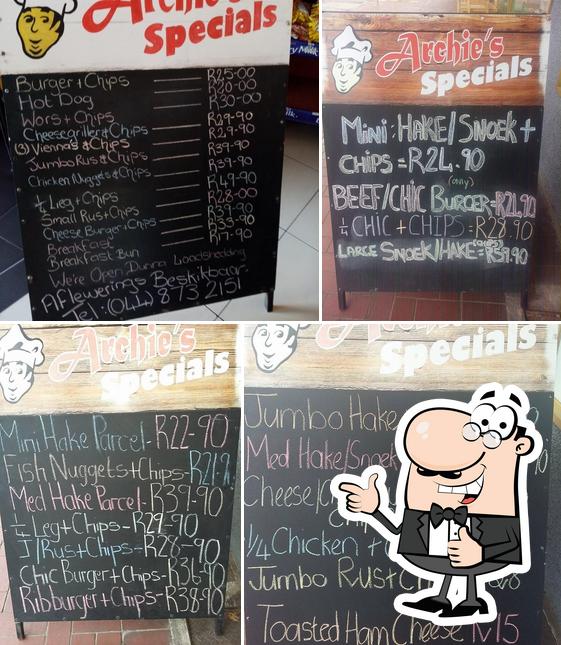 Archie's
Specials
Burger + Chips R25-00
Hot Dog R20-00
Wors + Chips R30-00
Cheesegriller & Chips R29-90
(3) Vienna's & Chips R29.90
Jumbo Rus & Chips R39-90
Chicken Nuggets & Chips R39.90
¼ Leg + Chips R49-90
Small Rus + Chips R28-00
Cheese Burger + Chips R39-90
Breakfast R35-90
Breakfast Bun R17-90
We're Open During Loadshedding
Aflewerings Beskikbaar.
Tel: (044) 873 2151
Archie's
Specials
Mini: Hake/Snoek +
Chips = R24.90
(only)
Beef/Chic Burger - R21.90
¼ Chic + Chips = R28.90
Large Snoek/Hake = R59.90
Archie's
Specials
Mini Hake Parcel - R22-90
Fish Nuggets + Chips - R21.9
Med Hake Parcel - R39-90
¼ Leg + Chips - R29-90
J/Rus + Chips - R28-90
Chic Burger + Chips - R36-90
Ribburger + Chips - R38-90
Specials
Jumbo Hake
Med Hake/Snoek
Cheese/
¼ Chicken +
Jumbo Rus + Ch
Toasted Ham Cheese R15